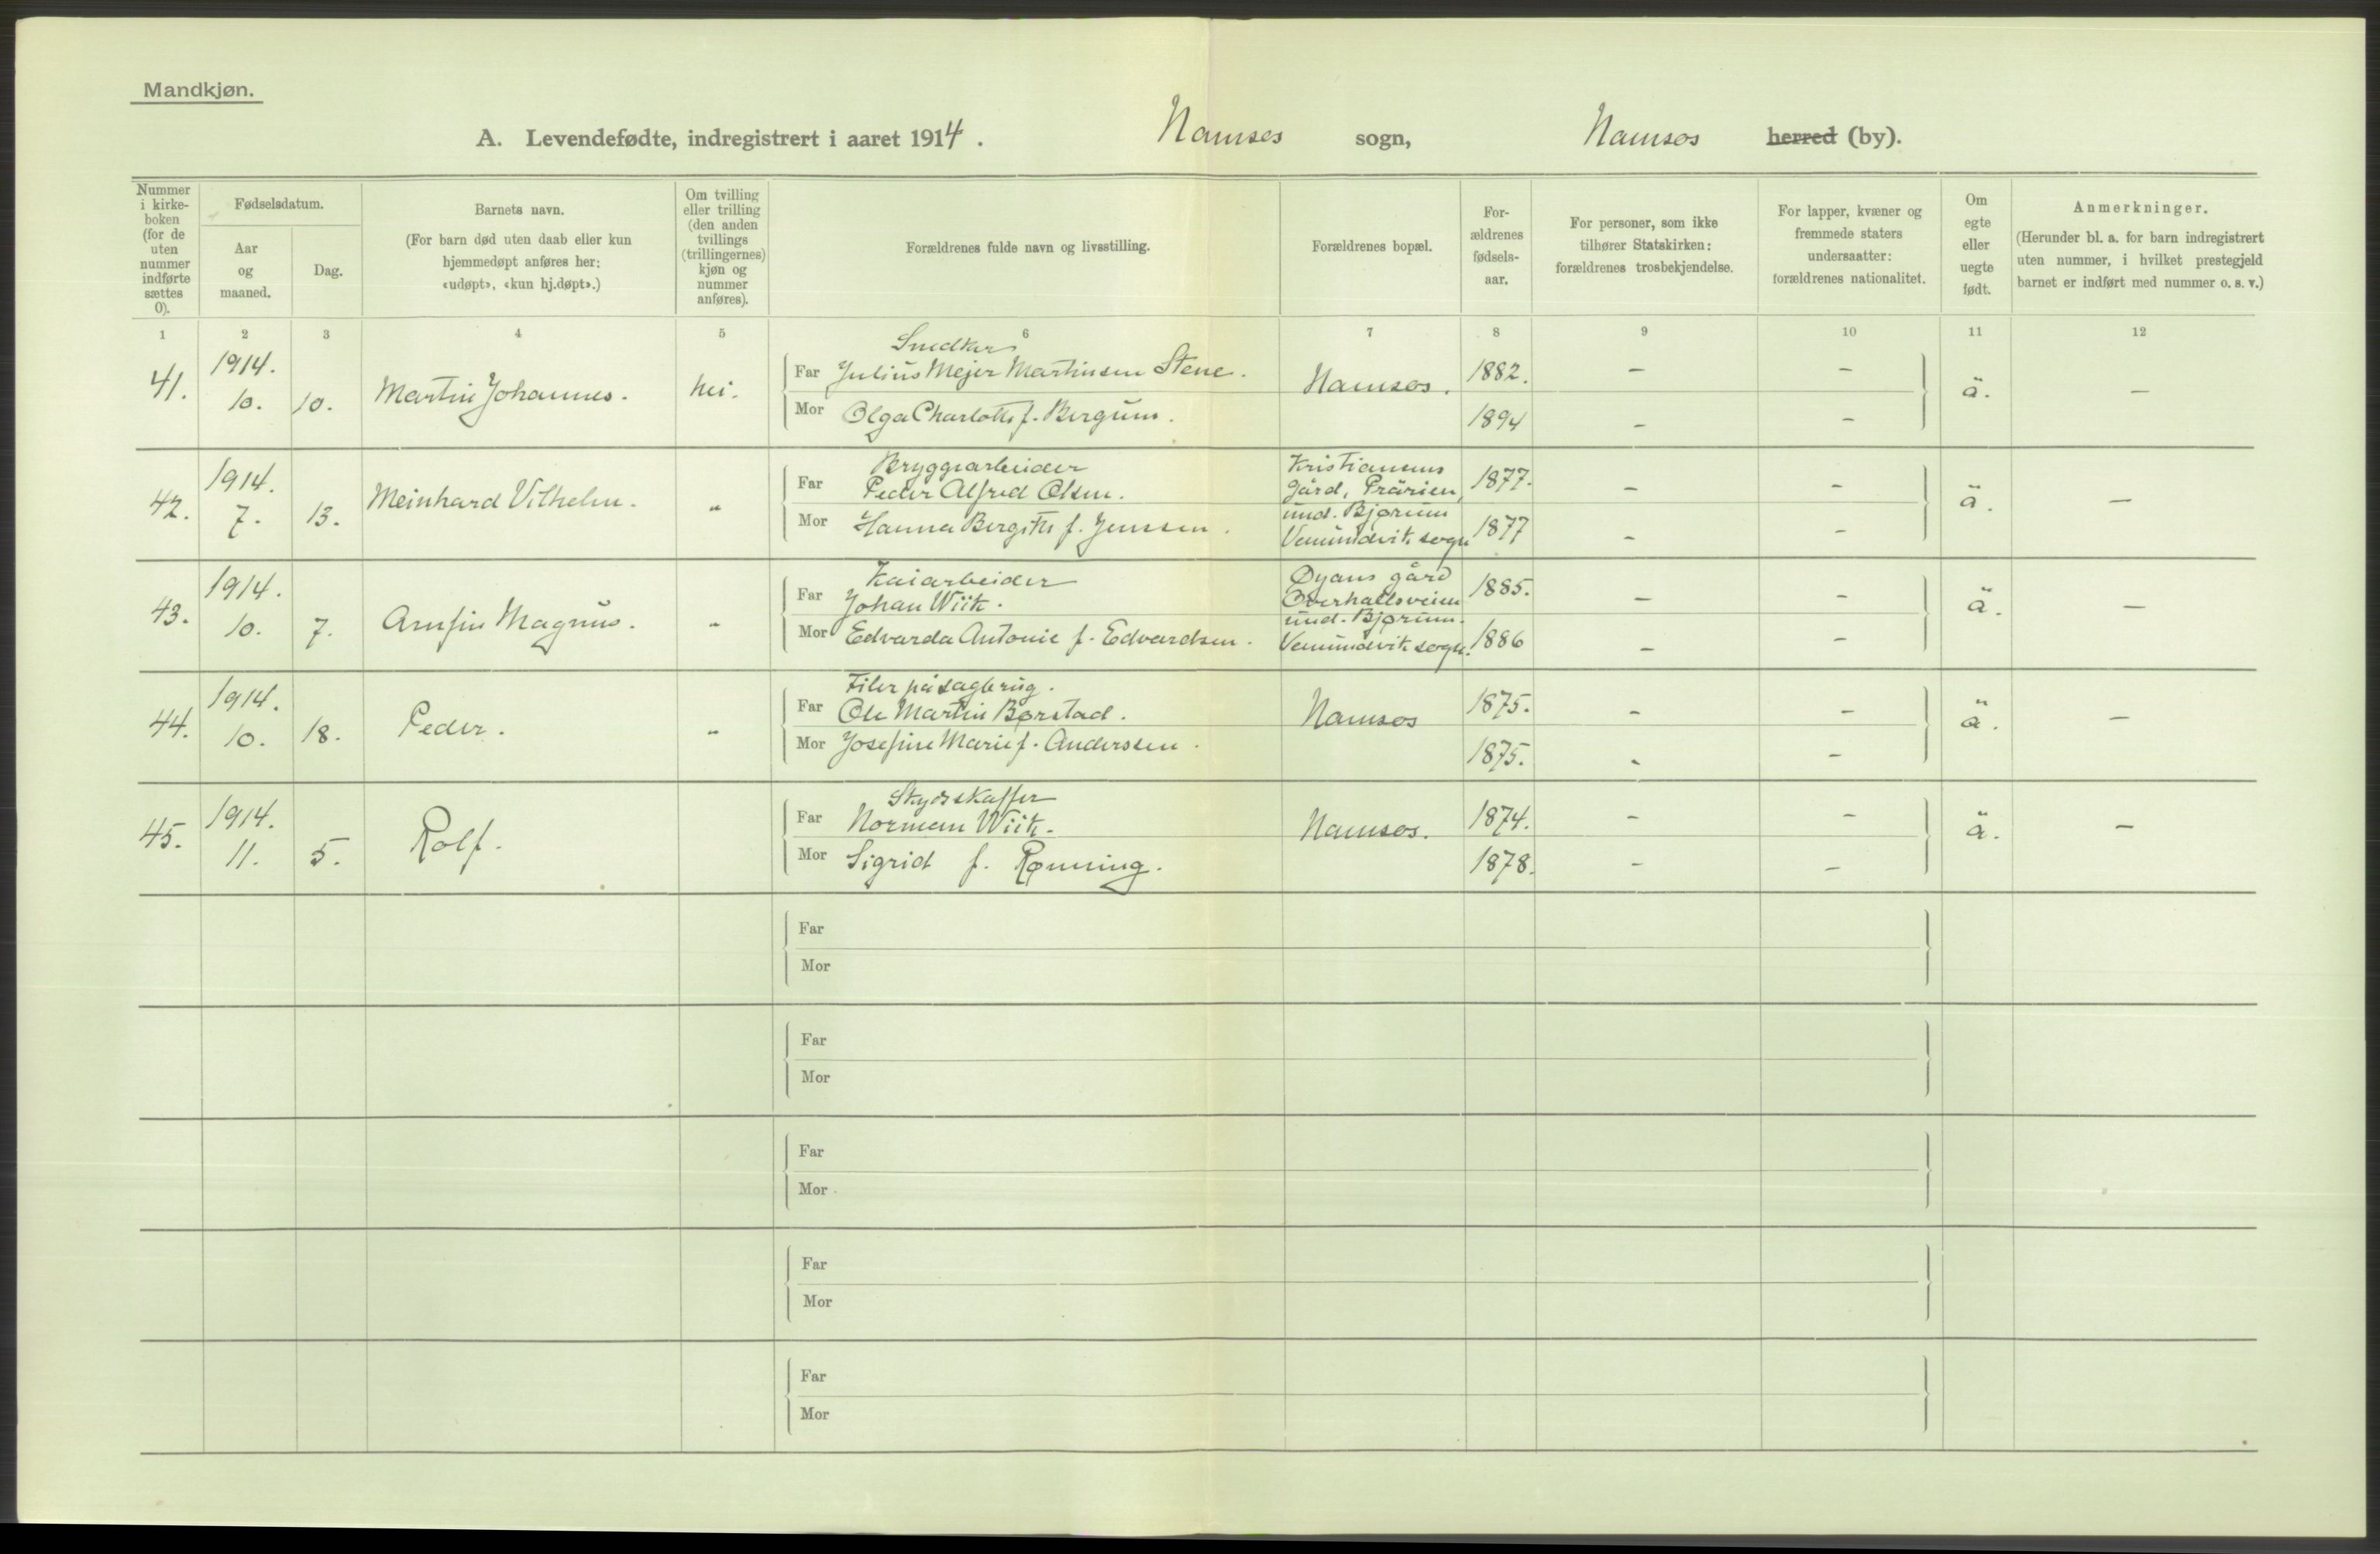 Mandkjøn.
A. Levendefødte, indregistrert i aaret 1914. Namsos sogn, Namsos herred (by).
Nummer
i kirke-
boken
(for de
uten
nummer
indførte
sættes
0).
Fødselsdatum.
Aar
og
maaned.
Dag.
Barnets navn.
(For barn død uten daab eller kun
hjemmedøpt anføres her:
«udøpt», «kun hj.døpt».)
Om tvilling
eller trilling
(den anden
tvillings
(trillingernes)
kjøn og
nummer
anføres).
Forældrenes fulde navn og livsstilling.
Forældrenes bopæl.
For-
ældrenes
fødsels-
aar.
For personer, som ikke
tilhører Statskirken:
forældrenes trosbekjendelse.
For lapper, kvæner og
fremmede staters
undersaatter:
forældrenes nationalitet.
Om
egte
eller
uegte
født.
Anmerkninger.
(Herunder bl. a. for barn indregistrert
uten nummer, i hvilket prestegjeld
barnet er indført med nummer o. s. v.)
1 2 3 4 5 6 7 8 9 10 11 12
41. 1914. 10. 10. Martin Johannes. nei.
Snedker
Far Julius Mejer Martinsen Stene. Namsos. 1882. – –
Mor Olga Charlotte f. Bergum. 1894 – – ä. –
42. 1914. 7. 13. Meinhard Vilhelm. "
Bryggearbeider
Far Peder Alfred Olsen. 1877. – –
Mor Hanna Bergitte f. Jenssen. 1877 – – ä. –
Kristiansens
gård, Prärien,
und. Bjørum
Vemundvik sogn
43. 1914. 10. 7. Arnfin Magnus. "
Kaiarbeider
Far Johan Wiik. 1885. – –
Mor Edvarda Antonie f. Edvardsen. 1886 – – ä. –
Øyans gård
Overhallsveien
und. Bjørum.
Vemundvik sogn.
44. 1914. 10. 18. Peder. "
Filer på sagbrug.
Far Ole Martin Børstad. Namsos 1875. – –
Mor Josefine Marie f. Anderssen. 1875. – – ä. –
45. 1914. 11. 5. Rolf.
Skydsskaffer
Far Norman Wiik. Namsos. 1874. – –
Mor Sigrid f. Rønning. 1878. – – ä. –
Far
Mor
Far
Mor
Far
Mor
Far
Mor
Far
Mor